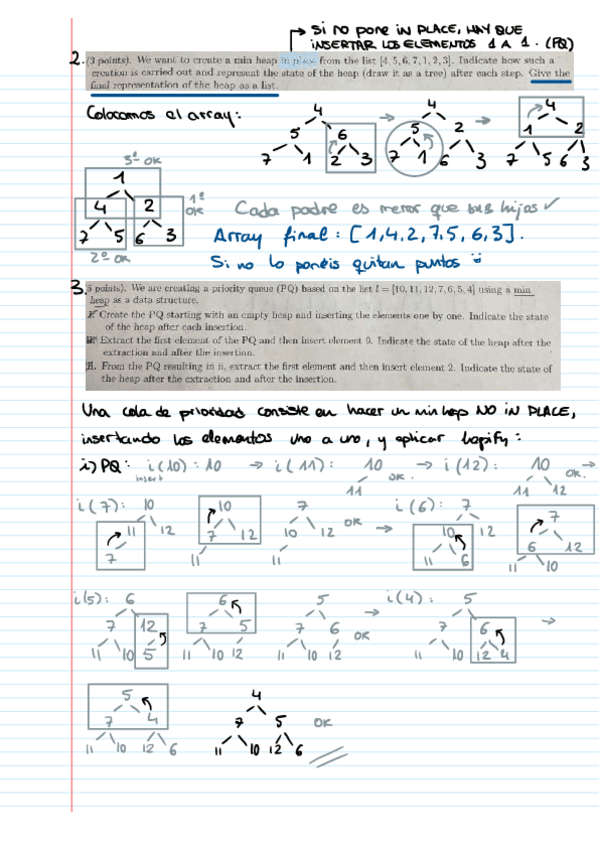 → SI NO PONE IN PLACE, HAY QUE
INSERTAR LOS ELEMENTOS 1 A 1. (PQ)
2. (3 points). We want to create a min heap in place from the list [4, 5, 6, 7, 1, 2, 3]. Indicate how such a
creation is carried out and represent the state of the heap (draw it as a tree) after each step. Give the
final representation of the heap as a list.
Colocamos el array:
4 → 4 → 4
5 6 5 2 1 2
7 1 2 3 7 1 6 3 7 5 6 3
3º OK
1
4 2 1º OK
7 5 6 3
2º OK
Cada padre es menor que sus hijos ✓
Array final: [1,4,2,7,5,6,3].
Si no lo ponéis quitan puntos
3. 5 points). We are creating a priority queue (PQ) based on the list l = [10, 11, 12, 7, 6, 5, 4] using a min
heap as a data structure.
i. Create the PQ starting with an empty heap and inserting the elements one by one. Indicate the state
of the heap after each insertion.
ii. Extract the first element of the PQ and then insert element 9. Indicate the state of the heap after the
extraction and after the insertion.
iii. From the PQ resulting in ii, extract the first element and then insert element 2. Indicate the state of
the heap after the extraction and after the insertion.
Una cola de prioridad consiste en hacer un min heap NO IN PLACE,
insertando los elementos uno a uno, y aplicar hepify:
i) PQ: i(10): 10 → i(11): 10 → i(12): 10 →
insert 11 OK. 11 12 OK.
i(7): 10 10 7 i(6): 7 7
11 12 7 12 10 12 OK → 10 12 6 12
7 11 11 11 6 11 10
i(5): 6 6 5 → i(4): 5 →
7 12 7 5 7 6 OK 7 6
11 10 5 11 10 12 11 10 12 11 10 12 4
5 4
7 4 7 5 OK
11 10 12 6 11 10 12 6